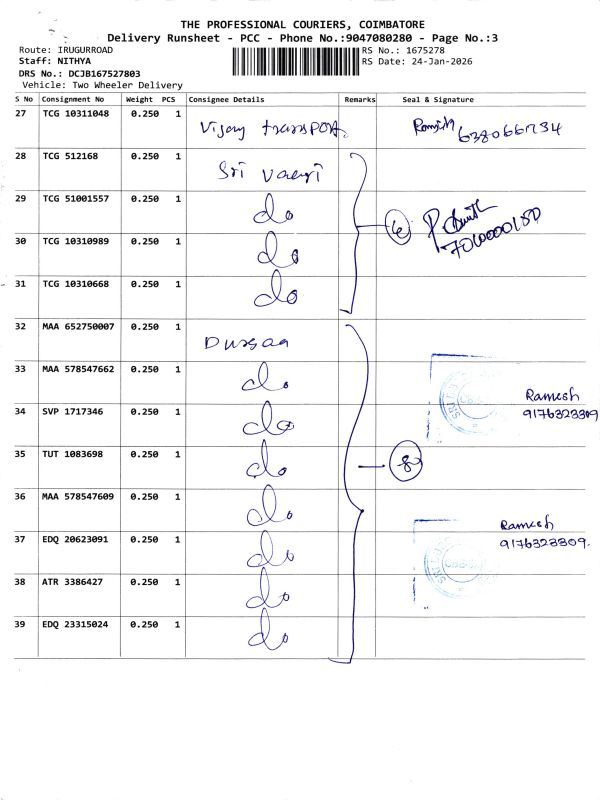 THE PROFESSIONAL COURIERS, COIMBATORE
Delivery Runsheet - PCC - Phone No.:9047080280 - Page No.:3
Route: IRUGURROAD
RS No.: 1675278
Staff: NITHYA
RS Date: 24-Jan-2026
DRS No.: DCJB167527803
Vehicle: Two Wheeler Delivery
S No Consignment No Weight PCS Consignee Details Remarks Seal & Signature
27 TCG 10311048 0.250 1 Vijay transport Ramesh
28 TCG 512168 0.250 1 Sri
29 TCG 51001557 0.250 1 do
30 TCG 10310989 0.250 1 do
31 TCG 10310668 0.250 1 do
32 MAA 652750007 0.250 1 Durgaa
33 MAA 578547662 0.250 1 do Ramesh
9176323309
34 SVP 1717346 0.250 1 do
35 TUT 1083698 0.250 1 do 8
36 MAA 578547609 0.250 1 do
37 EDQ 20623091 0.250 1 do Ramesh
9176323309.
38 ATR 3386427 0.250 1 do
39 EDQ 23315024 0.250 1 do